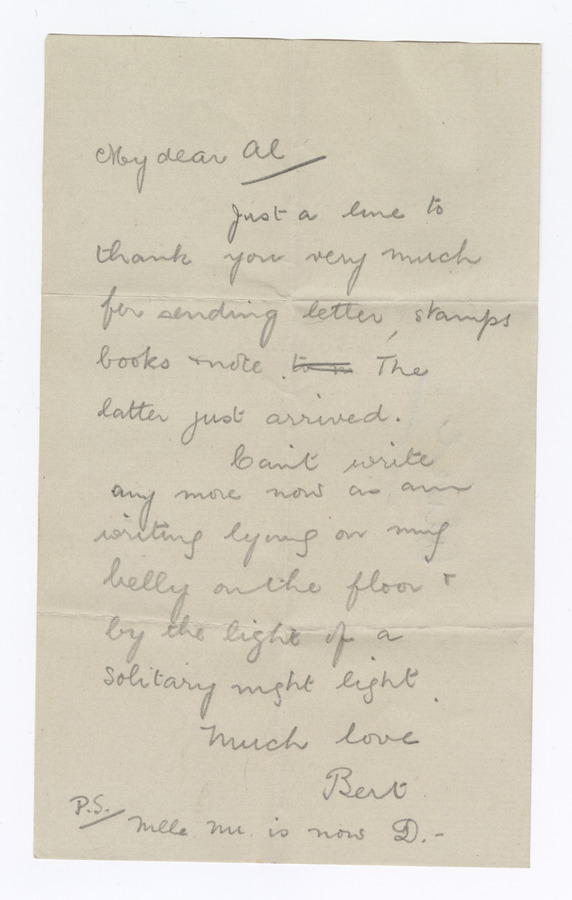 My dear Al
Just a line to
thank you very much
for sending letter, stamps
books & note. The
latter just arrived.
Can't write
any more now as am
writing lying on my
belly on the floor &
by the light of a
solitary night light.
Much love
Bert.
P.S.
Mlle. Mu. is now D.-